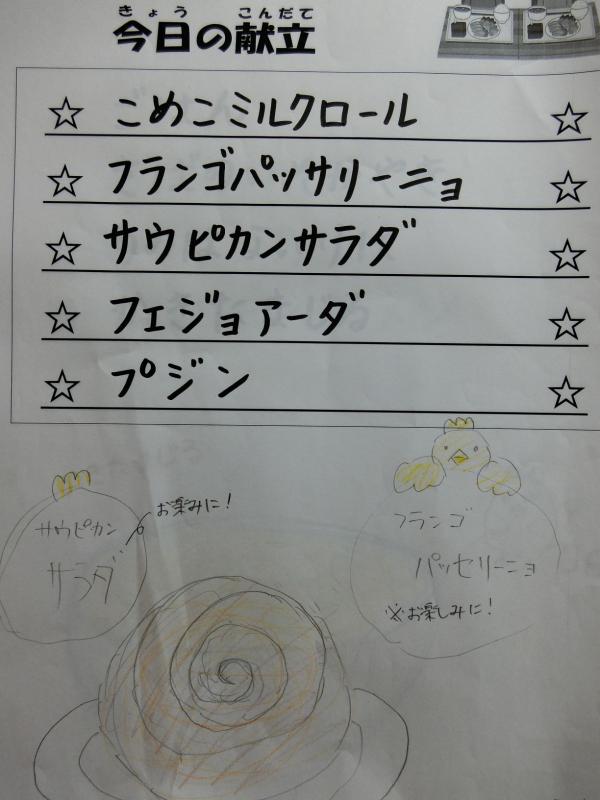 きょう こんだて
今日の献立
☆ こめこミルクロール ☆
☆ フランゴパッサリーニョ ☆
☆ サウピカンサラダ ☆
☆ フェジョアーダ ☆
☆ プジン ☆
お楽みに!
サウピカン
サラダ
フランゴ
パッセリーニョ
※お楽しみに!